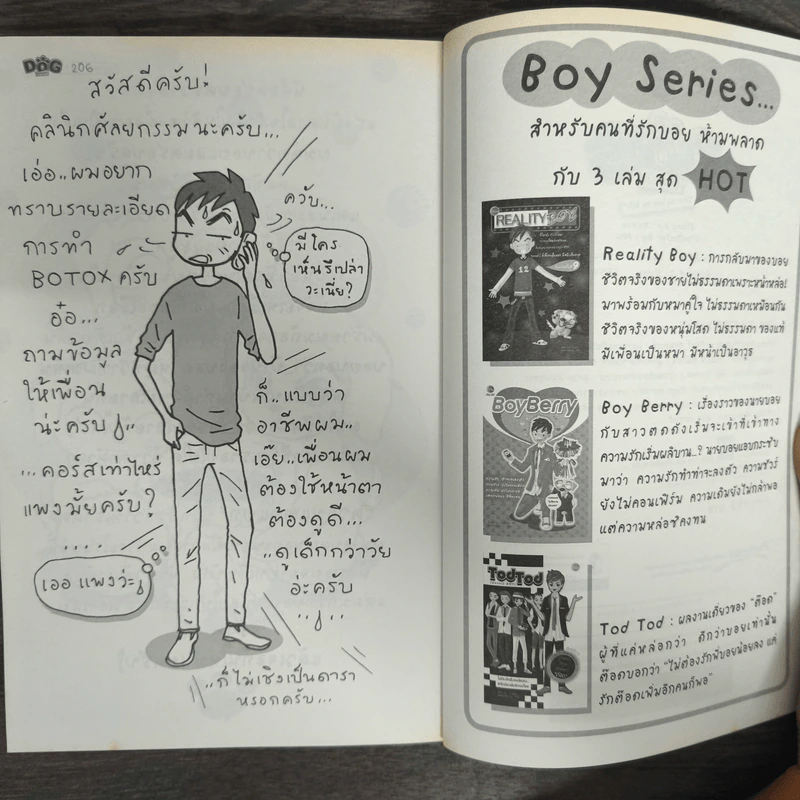 DOG 206
สวัสดีครับ!
คลินิกศัลยกรรมนะครับ...
เอ่อ..ผมอยาก
ทราบรายละเอียด
การทำ
BOTOX ครับ
อ๋อ...
ถามข้อมูล
ให้เพื่อน
น่ะครับ
...คอร์สเท่าไหร่
แพงมั้ยครับ?
....
เออ แพงว่ะ
ควับ...
มีใคร
เห็นรึเปล่า
วะเนี่ย?
ก็..แบบว่า
อาชีพผม..
เอ๊ย..เพื่อนผม
ต้องใช้หน้าตา
ต้องดูดี...
..ดูเด็กกว่าวัย
อ่ะครับ
..ก็ไม่เชิงเป็นดารา
หรอกครับ...
Boy Series...
สำหรับคนที่รักบอย ห้ามพลาด
กับ 3 เล่ม สุด HOT
REALITY BOY
12
Reality Boy : การกลับมาของบอย
ชีวิตจริงของชายไม่ธรรมดาเพราะหน้าหล่อ!
มาพร้อมกับหมาคู่ใจ ไม่ธรรมดาเหมือนกัน
ชีวิตจริงของหนุ่มโสด ไม่ธรรมดา ของแท้
มีเพื่อนเป็นหมา มีหน้าเป็นอาวุธ
BoyBerry
Boy Berry : เรื่องราวของนายบอย
กับสาวตกถังเริ่มจะเข้าที่เข้าทาง
ความรักเริ่มผลิบาน...? นายบอยแอบกระซิบ
มาว่า ความรักทำท่าจะลงตัว ความชัวร์
ยังไม่คอนเฟิร์ม ความเดิมยังไม่กล้าพอ
แต่ความหล่อซิคงทน
TodTod
Tod Tod : ผลงานเดี่ยวของ "ต๊อด"
ผู้ที่แค่หล่อกว่า ดีกว่าบอยเท่านั้น
ต๊อดบอกว่า "ไม่ต้องรักพี่บอยน้อยลง แค่
รักต๊อดเพิ่มอีกคนก็พอ"